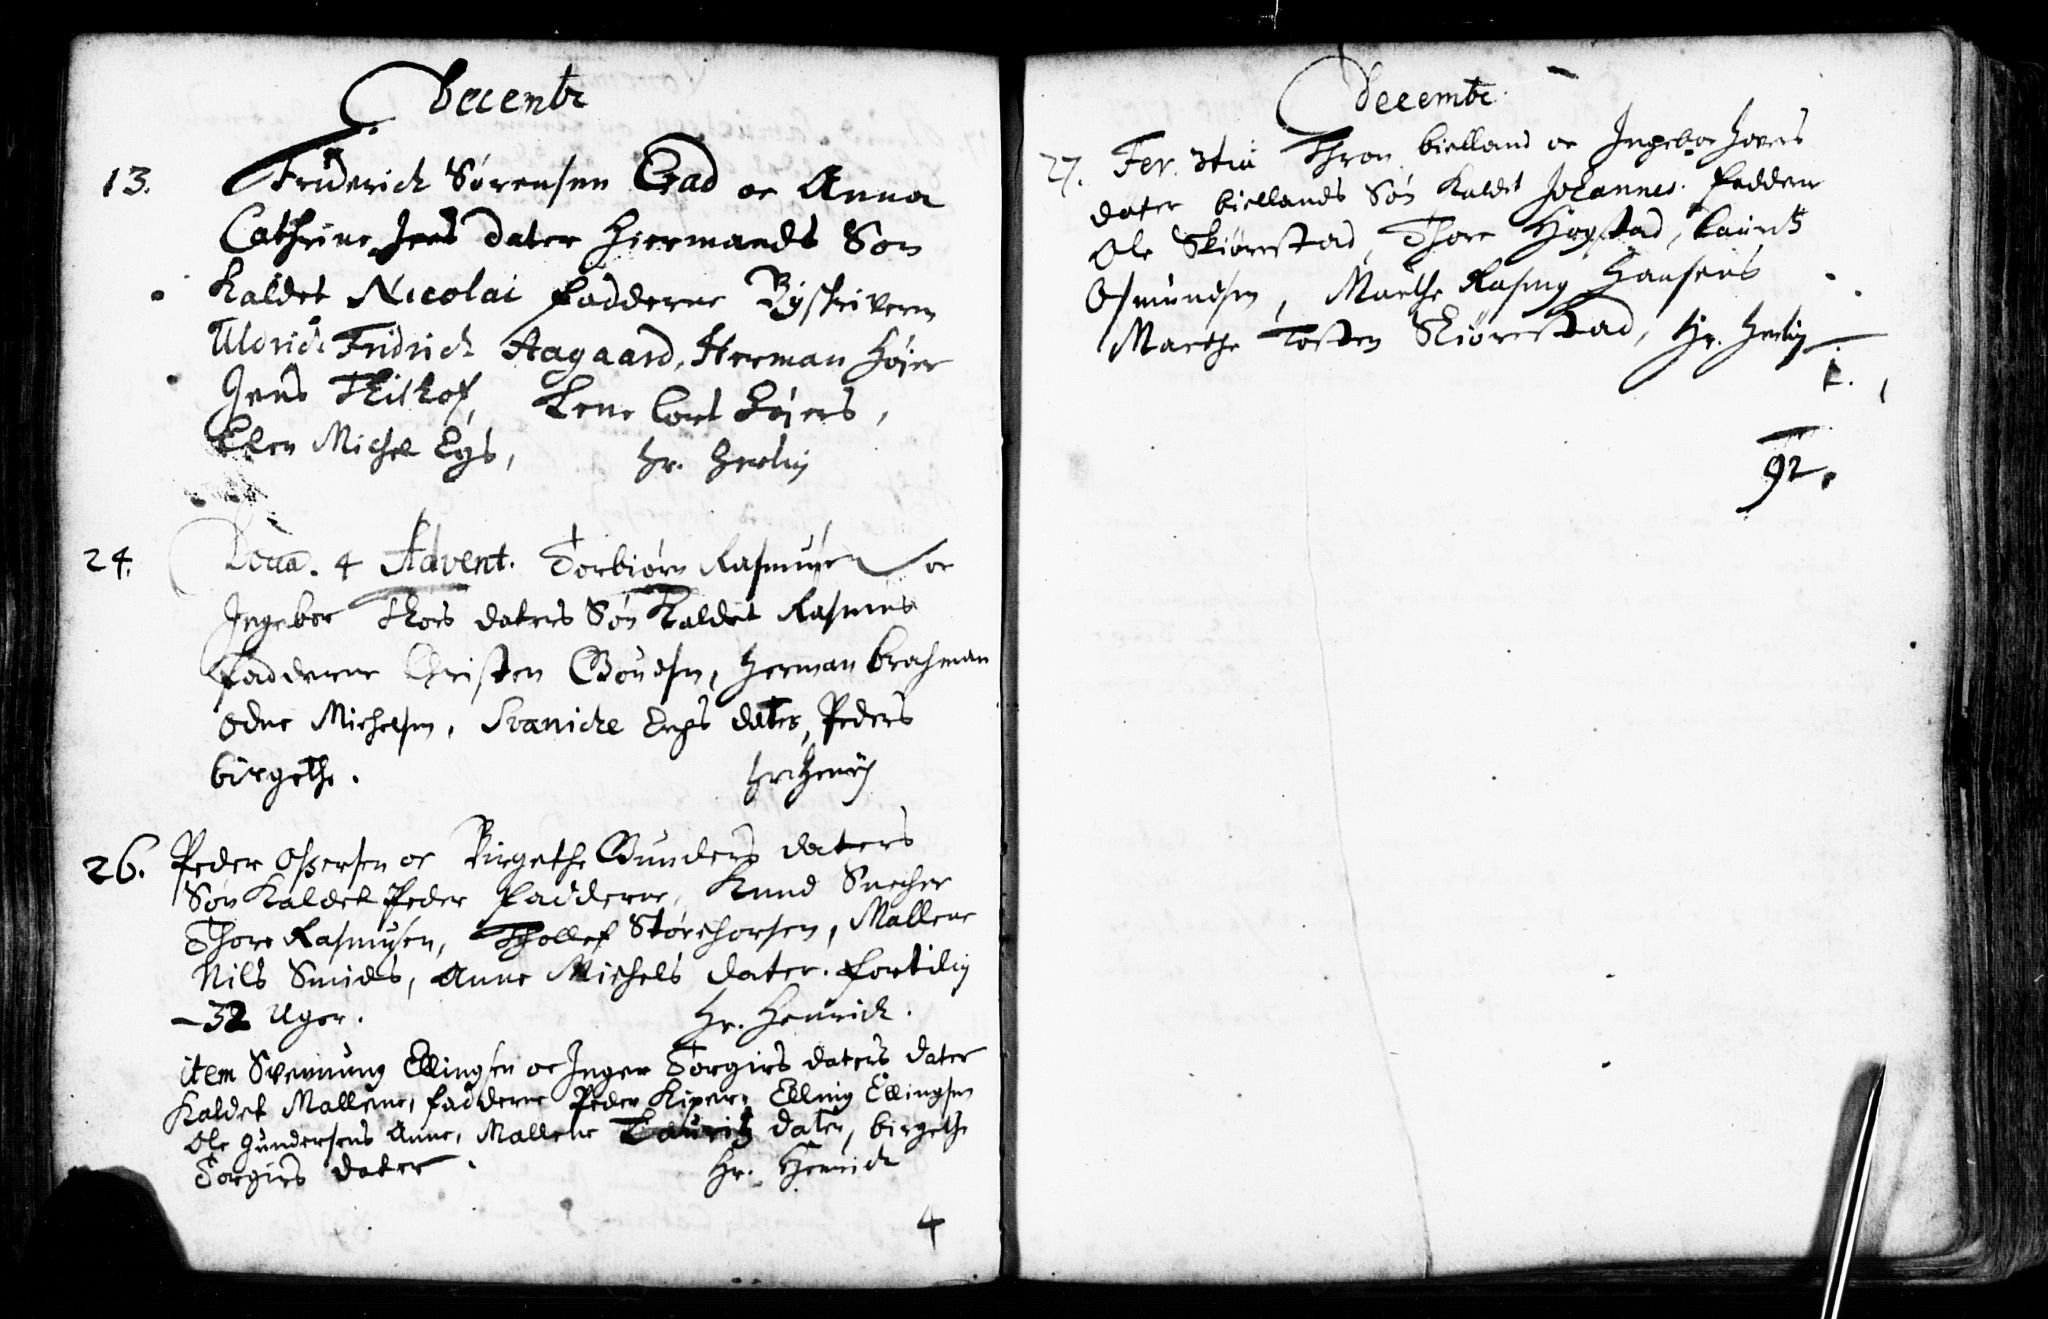 Decembr
13. Friderich Sørensen Crad oc Anna
Cathrine Jens dater Hiermands Søn
kaldet Nicolai fadderne Byskriveren
Uldrich Fridrich Aagaard, Herman Høier
Jens Thilhof, Lene Cort Høiers,
Elen Michel Eys, Hr. Herlig
24. Doca. 4 Advent. Torbiørn Rasmusen oc
Ingebor Thors daters Søn kaldet Rasmus
fadderne Christen Goudsen, Herman brasman
Odne Michelsen, Svanicke Engs dater, Peders
birgethe. Hr. Henrich
26. Peder Ossersen oc Birgethe Gunders daters
Søn kaldet Peder fadderne, Knud Snecher
Thore Rasmusen, Thollef Størchorsen, Mallene
Nils Smids, Anne Michels dater. fortilig
32 Uger. Hr. Henrich.
item Svennung Ellingsen oc Inger Torgirs daters dater
kaldet Mallene, fadderne Peder Kiper, Elling Ellingsen
Ole gundersens Anne, Mallene Lauritz dater, birgethe
Torgirs dater. Hr. Henrich
4
Decembr.
27. Fer. 3tia Thron bielland oc Ingebor Hovers
dater biellands Søn kaldet Johannes. faddere
Ole Skiørestad, Thore Høgstad, Lauritz
Osmundsen, Marthe Rasmus Hansens
Marthe Tosten Skiørestad, Hr. Herlig
1.
92.